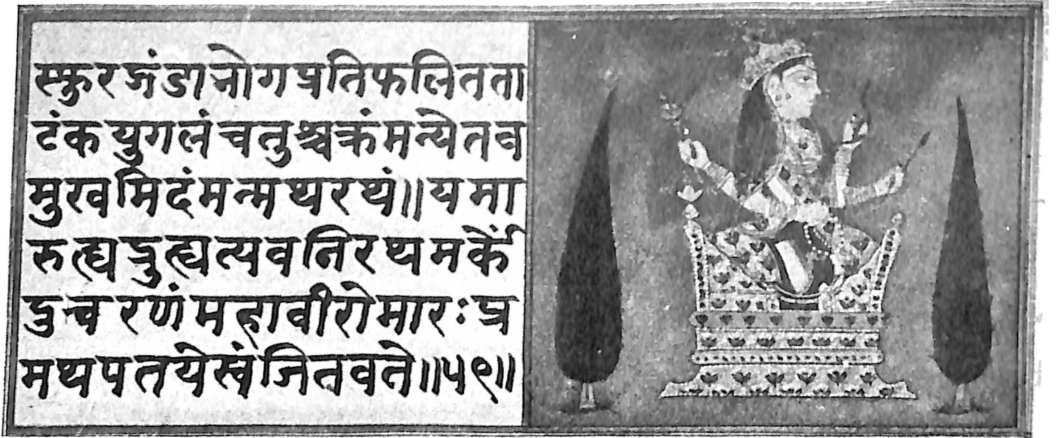 स्फुरजंडाभोगप्रतिफलितता
टंकयुगलंचतुश्चक्रंमन्येतव
मुखमिदंमन्मथरथं॥यमा
रुह्यद्रुह्यत्यवनिरथमर्कें
दुचरणंमहावीरोमारःप्र
मथपतयेसंजितवते॥५९॥